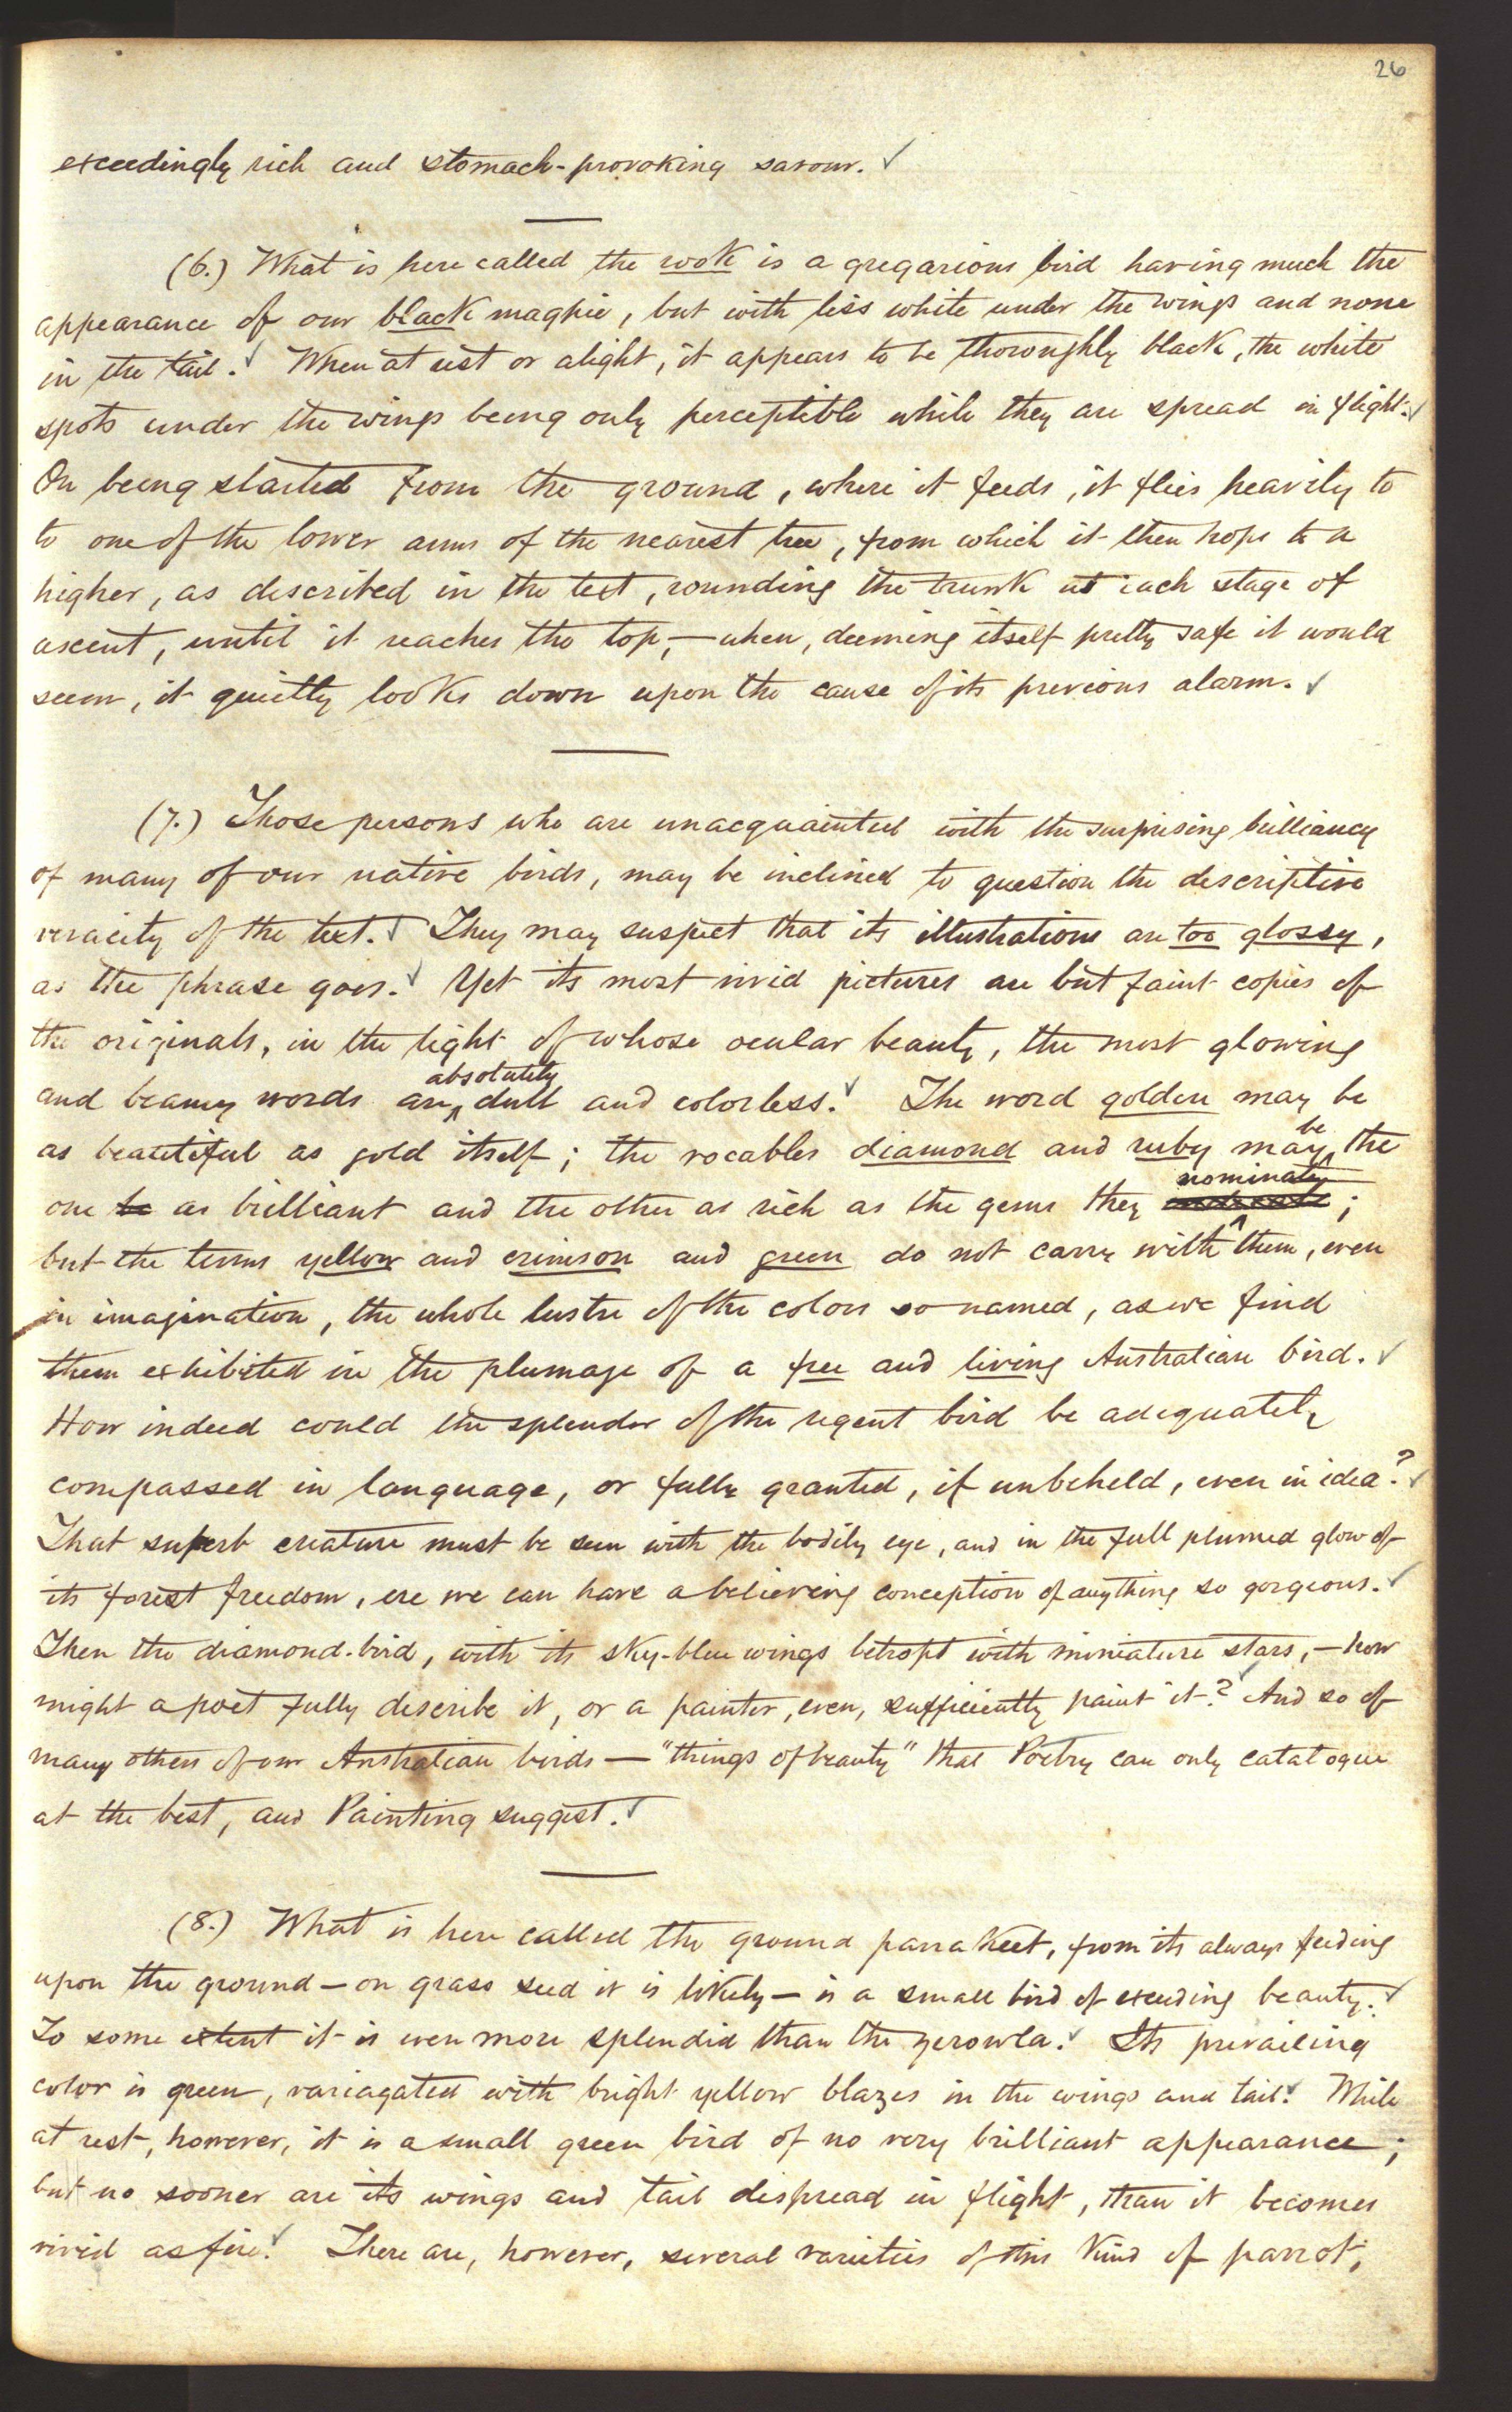 26
exceedingly rich and stomach-provoking savour. ✓
(6.) What is here called the rook is a gregarious bird having much the
appearance of our black magpie, but with less white under the wings and none
in the tail. ✓ When at rest or alight, it appears to be thoroughly black, the white
spots under the wings being only perceptible while they are spread in flight. ✓
On being started from the ground, where it feeds, it flies heavily to
to one of the lower arms of the nearest tree, from which it then hops to a
higher, as described in the text, rounding the trunk at each stage of
ascent, until it reaches the top,—when, deeming itself pretty safe it would
seem, it quietly looks down upon the cause of its previous alarm. ✓
(7.) Those persons who are unacquainted with the surprising brilliancy
of many of our native birds, may be inclined to question the descriptive
veracity of the text. ✓ They may suspect that its illustrations are too glossy,
as the phrase goes. ✓ Yet its most vivid pictures are but faint copies of
the originals, in the light of whose ocular beauty, the most glowing
absolutely
and beamy words are^ dull and colorless. ✓ The word golden may be
be
as beautiful as gold itself; the vocables diamond and ruby may^ the
nominate
one be as brilliant and the other as rich as the gems they ;
but the terms yellow and crimson and green do not carry with^ them, even
in imagination, the whole lustre of the colors so named, as we find
them exhibited in the plumage of a free and living Australian bird. ✓
How indeed could the splendor of the regent bird be adequately
compassed in language, or fully granted, if unbeheld, even in idea? ✓
That superb creature must be seen with the bodily eye, and in the full plumed glow of
its forest freedom, ere we can have a believing conception of anything so gorgeous. ✓
Then the diamond-bird, with its sky-blue wings betropt with miniature stars,—how
might a poet fully describe it, or a painter, even, sufficiently paint it? ✓ And so of
many others of our Australian birds—"things of beauty" that Poetry can only catalogue
at the best, and Painting suggest. ✓
(8.) What is here called the ground parrakeet, from its always feeding
upon the ground—on grass seed it is likely—is a small bird of exceeding beauty. ✓
To some extent it is even more splendid than the gerowla. ✓ Its prevailing
color is green, variagated with bright yellow blazes in the wings and tail. ✓ While
at rest, however, it is a small green bird of no very brilliant appearance;
but no sooner are its wings and tail dispread in flight, than it becomes
vivid as fire. ✓ There are, however, several varieties of this kind of parrot,